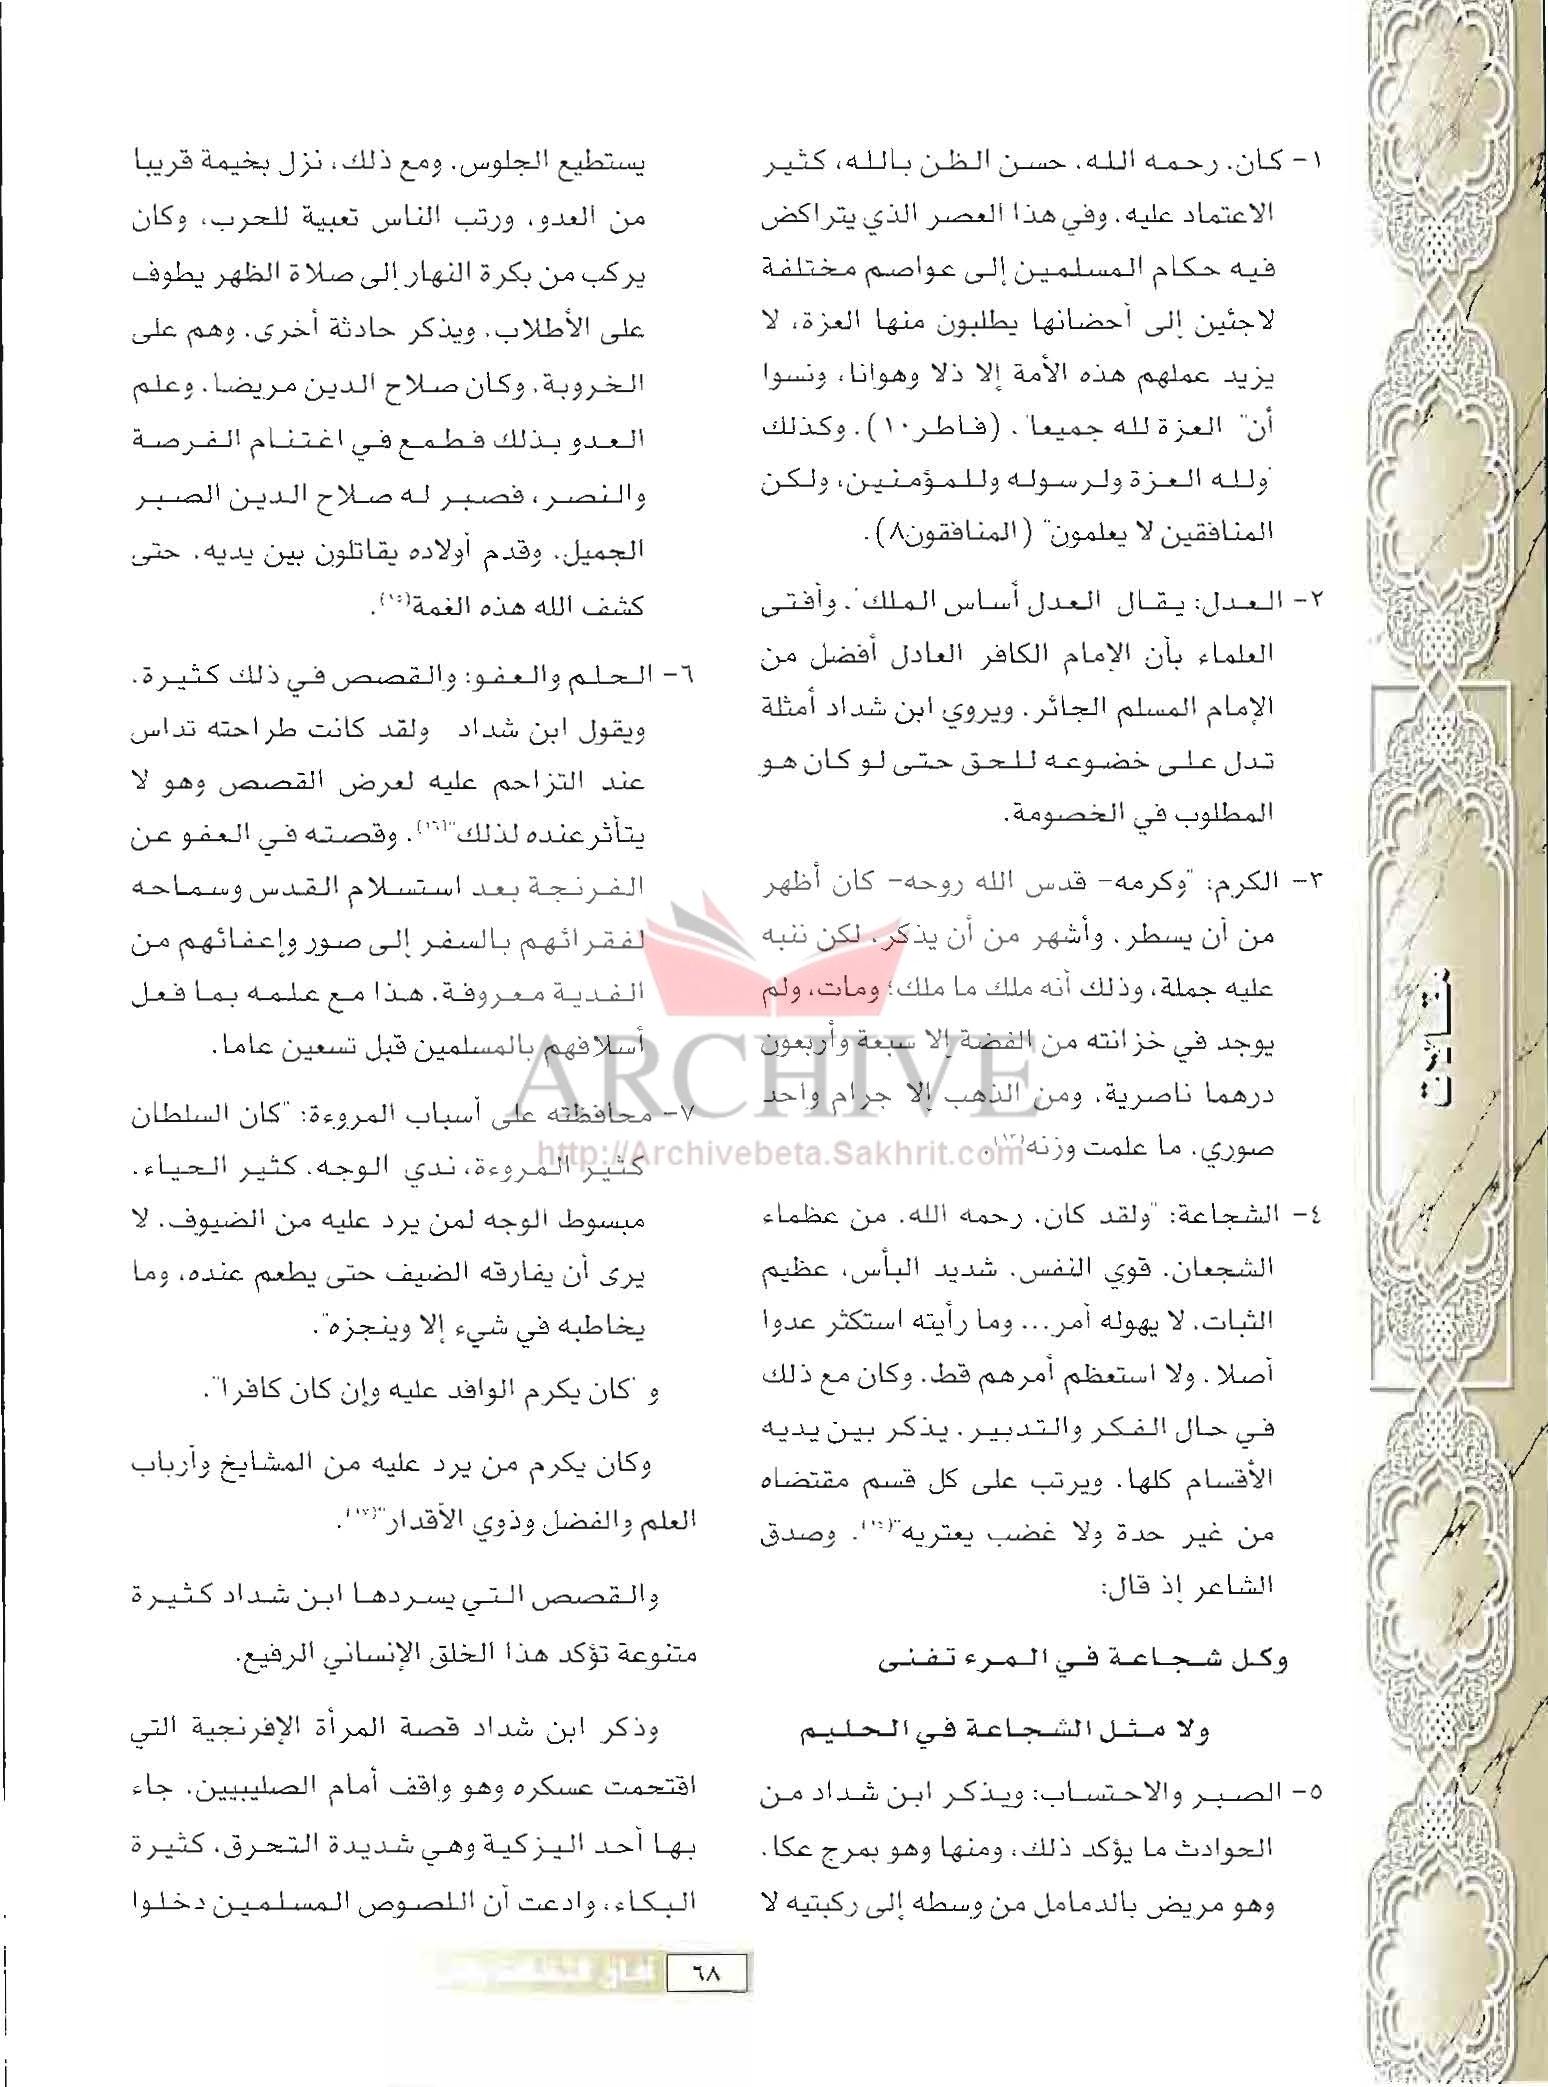 ١- كان. رحمه الله. حسن الظن بالله، كثير
الاعتماد عليه. وفي هذا العصر الذي يتراكض
فيه حكام المسلمين إلى عواصم مختلفة
لاجئين إلى أحضانها يطلبون منها العزة، لا
يزيد عملهم هذه الأمة إلا ذلا وهوانا، ونسوا
أن" العزة لله جميعا". (فاطر١٠). وكذلك
"ولله العزة ولرسوله وللمؤمنين، ولكن
المنافقين لا يعلمون" (المنافقون٨).
٢- العدل: يقال "العدل أساس الملك". وأفتى
العلماء بأن الإمام الكافر العادل أفضل من
الإمام المسلم الجائر. ويروي ابن شداد أمثلة
تدل على خضوعه للحق حتى لو كان هو
المطلوب في الخصومة.
٣- الكرم: "وكرمه- قدس الله روحه- كان أظهر
من أن يسطر. وأشهر من أن يذكر. لكن ننبه
عليه جملة، وذلك أنه ملك ما ملك؛ ومات، ولم
يوجد في خزانته من الفضة إلا سبعة وأربعون
درهما ناصرية، ومن الذهب إلا جرام واحد
صوري. ما علمت وزنه"(١٣).
٤- الشجاعة: "ولقد كان. رحمه الله. من عظماء
الشجعان. قوي النفس. شديد البأس، عظيم
الثبات. لا يهوله أمر... وما رأيته استكثر عدوا
أصلا. ولا استعظم أمرهم قط. وكان مع ذلك
في حال الفكر والتدبير. يذكر بين يديه
الأقسام كلها. ويرتب على كل قسم مقتضاه
من غير حدة ولا غضب يعتريه". وصدق
الشاعر إذ قال:
وكل شجاعة في المرء تفنى
ولا مثل الشجاعة في الحليم
٥- الصبر والاحتساب: ويذكر ابن شداد من
الحوادث ما يؤكد ذلك، ومنها وهو بمرج عكا.
وهو مريض بالدمامل من وسطه إلى ركبتيه لا
يستطيع الجلوس. ومع ذلك، نزل بخيمة قريبا
من العدو، ورتب الناس تعبية للحرب، وكان
يركب من بكرة النهار إلى صلاة الظهر يطوف
على الأطلاب. ويذكر حادثة أخرى. وهم على
الخروبة. وكان صلاح الدين مريضا. وعلم
العدو بذلك فطمع في اغتنام الفرصة
والنصر، فصبر له صلاح الدين الصبر
الجميل. وقدم أولاده يقاتلون بين يديه. حتى
كشف الله هذه الغمة(١٥).
٦- الحلم والعفو: والقصص في ذلك كثيرة.
ويقول ابن شداد ولقد كانت طراحته تداس
عند التزاحم عليه لعرض القصص وهو لا
يتأثر عنده لذلك"(١٦). وقصته في العفو عن
الفرنجة بعد استسلام القدس وسماحه
لفقرائهم بالسفر إلى صور وإعفائهم من
الفدية معروفة. هذا مع علمه بما فعل
أسلافهم بالمسلمين قبل تسعين عاما.
٧- محافظته على أسباب المروءة: "كان السلطان
كثير المروءة، ندي الوجه. كثير الحياء.
مبسوط الوجه لمن يرد عليه من الضيوف. لا
يرى أن يفارقه الضيف حتى يطعم عنده، وما
يخاطبه في شيء إلا وينجزه".
و "كان يكرم الوافد عليه وإن كان كافرا".
وكان يكرم من يرد عليه من المشايخ وأرباب
العلم والفضل وذوي الأقدار"(١٧).
والقصص التي يسردها ابن شداد كثيرة
متنوعة تؤكد هذا الخلق الإنساني الرفيع.
وذكر ابن شداد قصة المرأة الإفرنجية التي
اقتحمت عسكره وهو واقف أمام الصليبيين. جاء
بها أحد اليزكية وهي شديدة التحرق، كثيرة
البكاء، وادعت أن اللصوص المسلمين دخلوا
ARCHIVE
http://Archivebeta.Sakhrit.com
٦٨